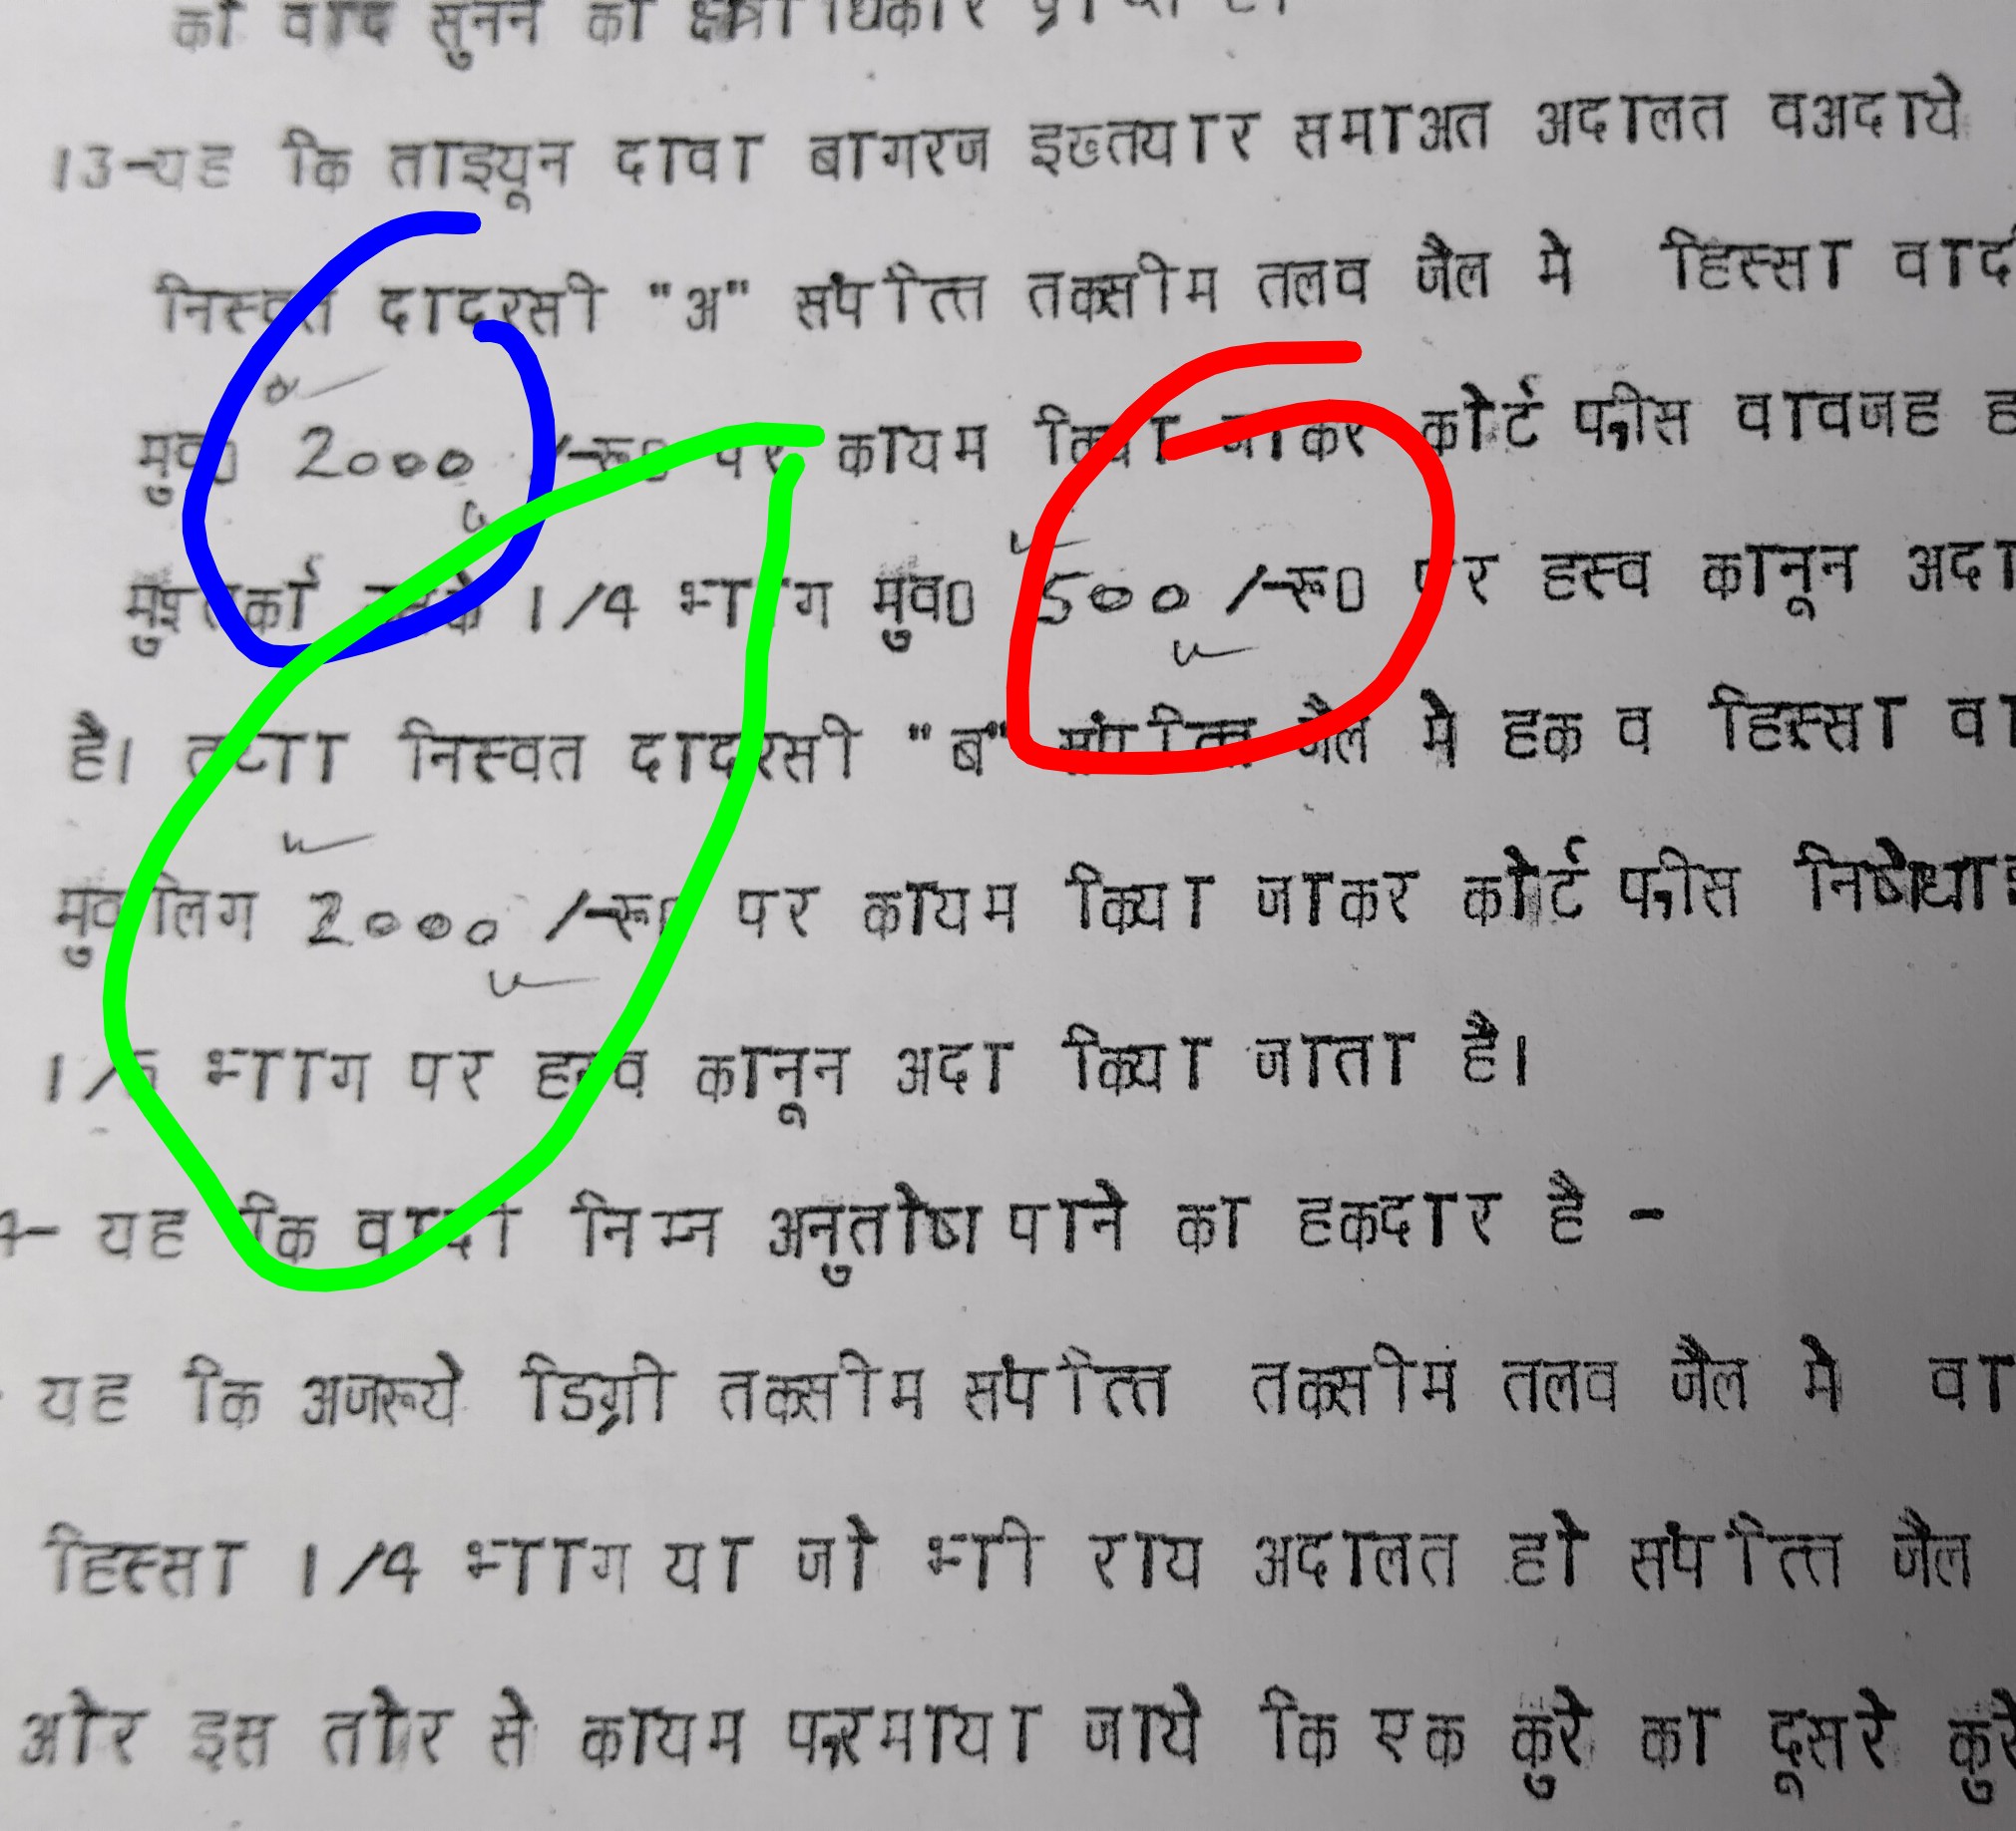 को वाद सुनने का क्षेत्राधिकार प्राप्त है।
13-यह कि ताइयून दावा बागरज इख्तयार समाअत अदालत वअदाये
निस्वत दादरसी "अ" संपत्ति तक्सीम तलव जैल मे हिस्सा वादी
मुव0 2000 /-रू0 पर कायम किया जाकर कोर्ट फीस वावजह
मुश्तर्का 1/4 भाग मुव0 500 /-रू0 पर हस्व कानून अदा
है। तथा निस्वत दादरसी "ब" संपत्ति जैल मे हक व हिस्सा वा
मुवलिग 2000 /-रू0 पर कायम किया जाकर कोर्ट फीस निषेधा
भाग पर हस्व कानून अदा किया जाता है।
4- यह कि वादी निम्न अनुतोष पाने का हकदार है -
यह कि अजरूये डिग्री तक्सीम संपत्ति तक्सीम तलव जैल मे वा
हिस्सा 1/4 भाग या जो भी राय अदालत हो संपत्ति जैल
और इस तौर से कायम फरमाया जाये कि एक कुरे का दूसरे कुरे